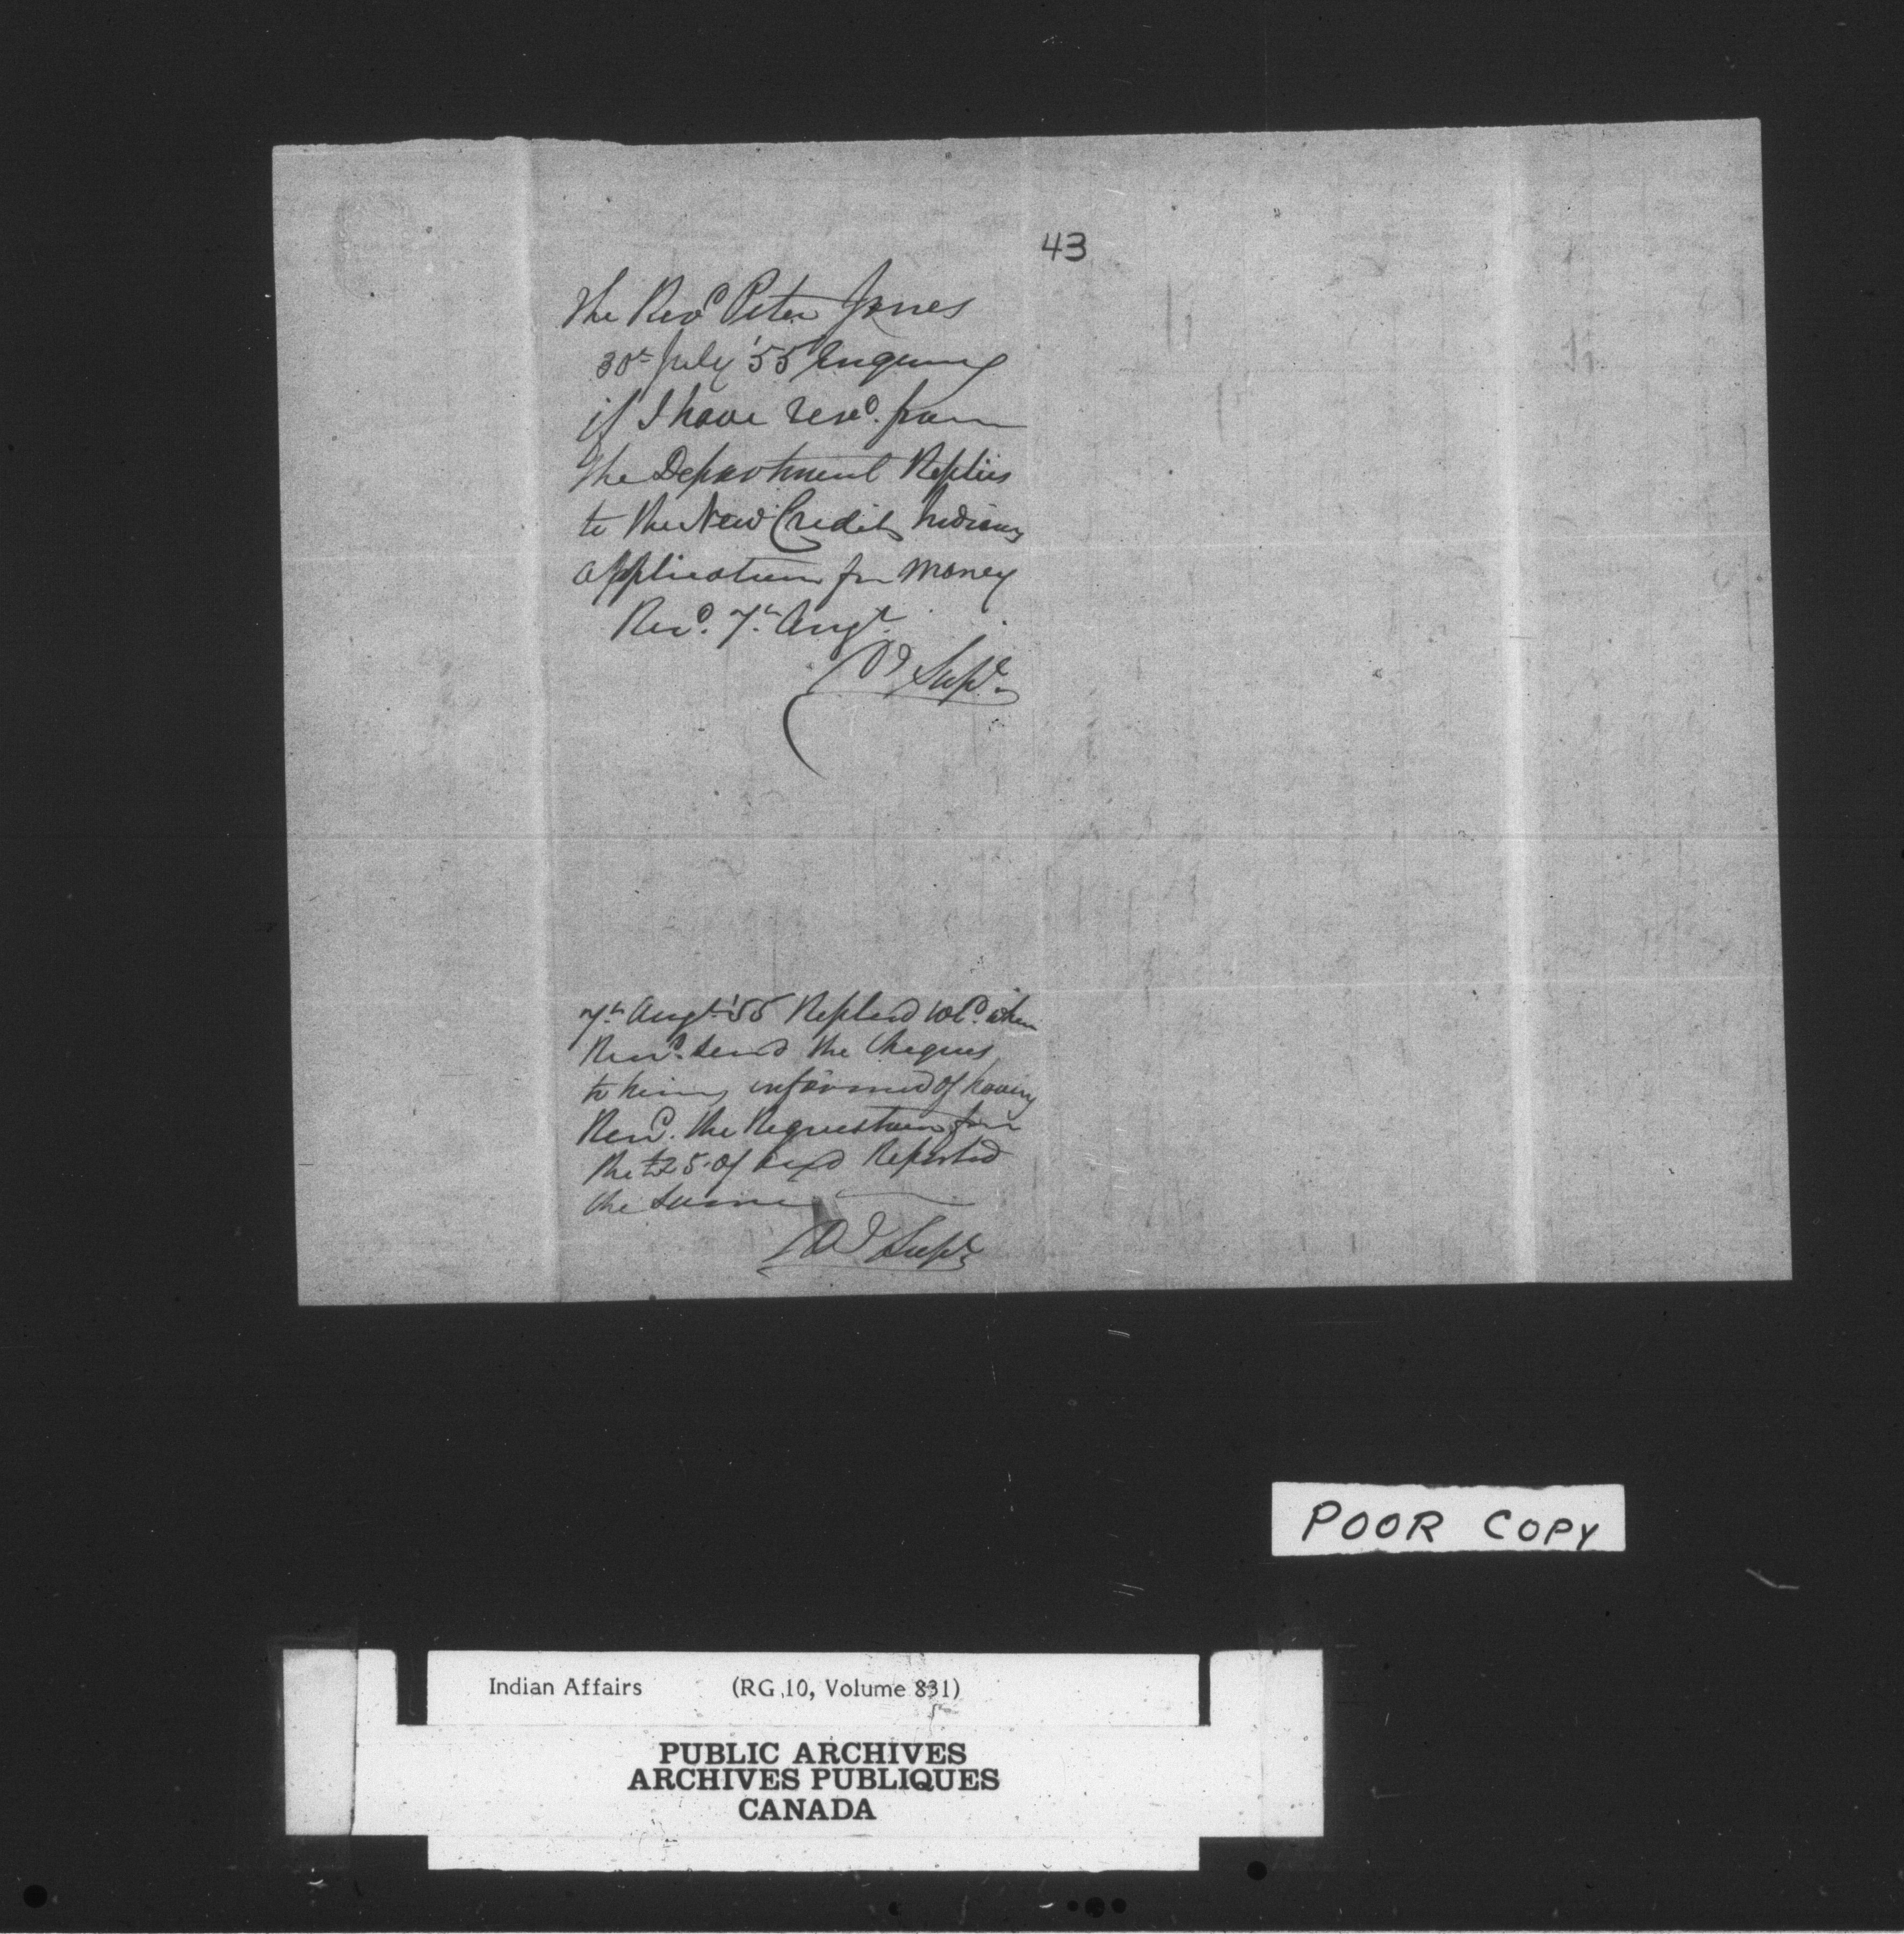 43
The Revd Peter Jones
30th July '55 Enquiring
if I have recd. from
the Department Replies
to the New Credit Indians
application for money
Recd. 7th Augt.
Supt.
7th Augt '55 Replied wd. when
Recd. send the Cheques
to him, informed of having
Recd. the Requestion for
the £25. of and Reported
the same
Supt.
POOR COPY
Indian Affairs (RG 10, Volume 831)
PUBLIC ARCHIVES
ARCHIVES PUBLIQUES
CANADA